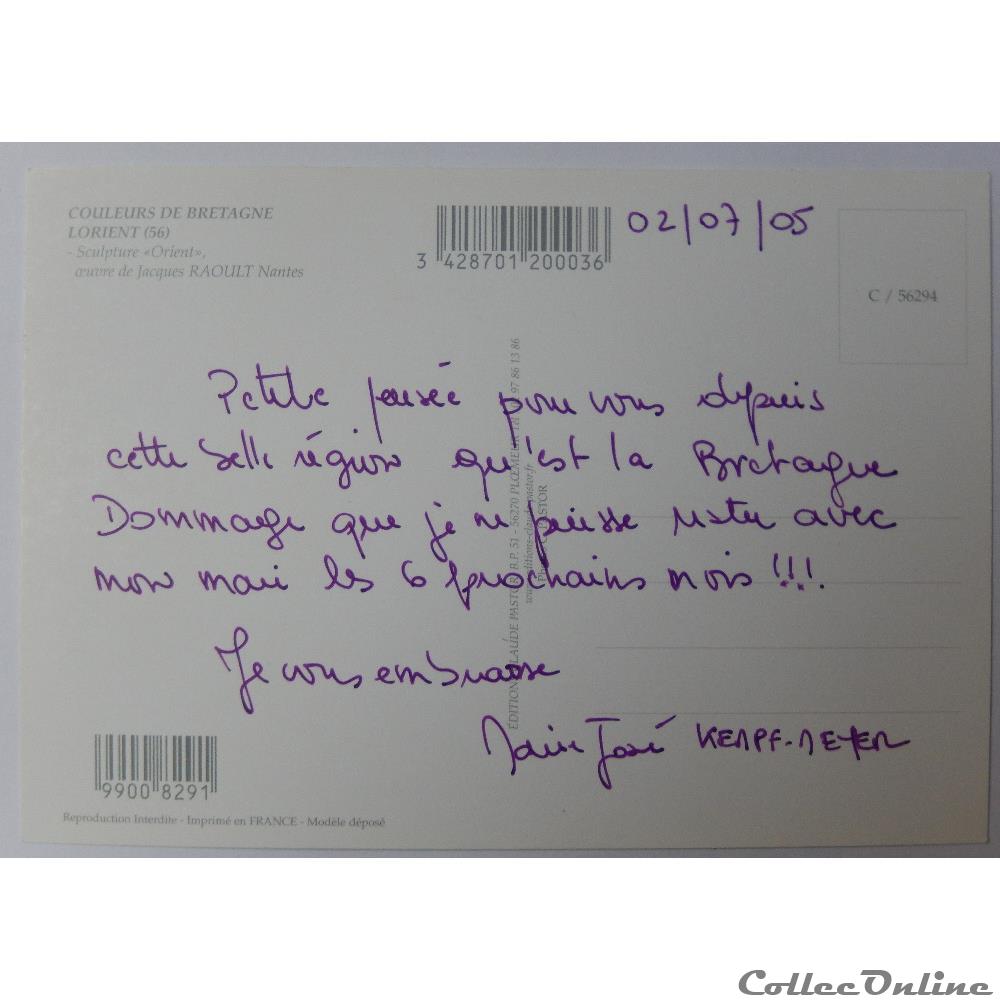 COULEURS DE BRETAGNE
LORIENT (56)
- Sculpture «Orient»,
œuvre de Jacques RAOULT Nantes
3 428701 200036
02/07/05
C / 56294
Petite pensée pour vous depuis
cette belle région qu'est la Bretagne
Dommage que je ne puisse rester avec
mon mari les 6 prochains mois !!!.
Je vous embrasse
Marie José KEMPF-MEYER
ÉDITIONS CLAUDE PASTOR B.P. 51 - 56270 PLŒMEUR 97 86 13 86
www.editions-claude-pastor.fr
PASTOR
9900 8291
Reproduction Interdite - Imprimé en FRANCE - Modèle déposé
CollecOnline